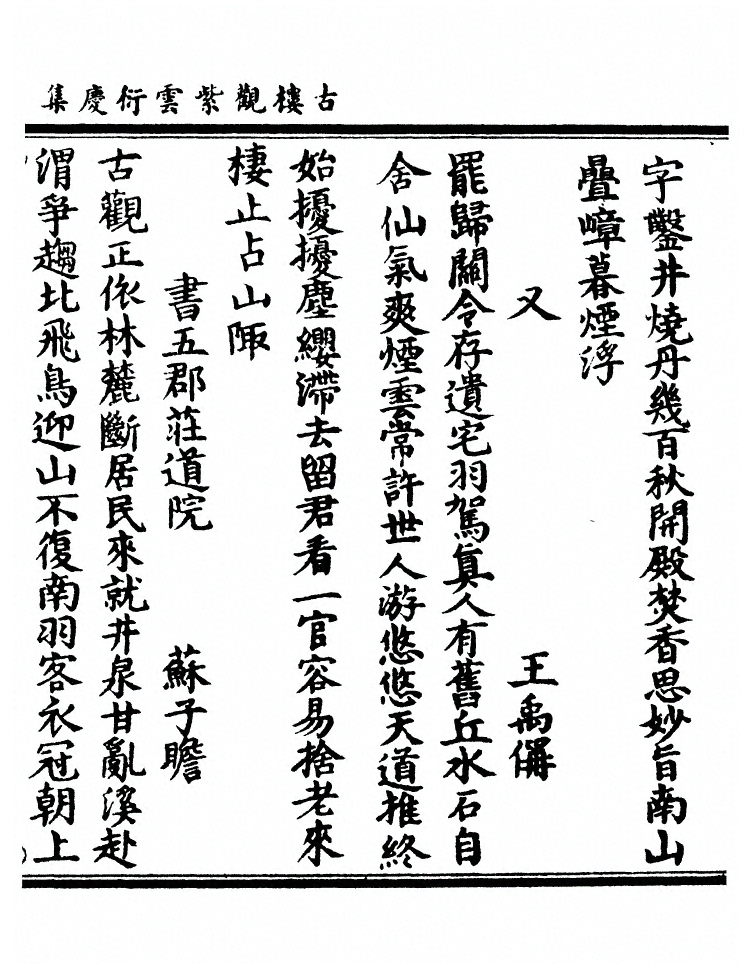 古樓觀紫雲衍慶集
字鑿井燒丹幾百秋開殿焚香思妙旨南山
疊嶂暮煙浮
又　王禹偁
罷歸關令存遺宅羽駕真人有舊丘水石自
含仙氣爽煙雲常許世人游悠悠天道推終
始擾擾塵纓滯去留君看一官容易捨老來
棲止占山陬
書五郡莊道院　蘇子瞻
古觀正依林麓斷居民來就井泉甘亂溪赴
渭爭趨北飛鳥迎山不復南羽客衣冠朝上